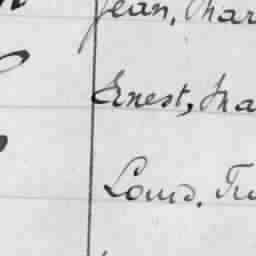 Jean, Mar
Ernest, Ma
Louis. Tu